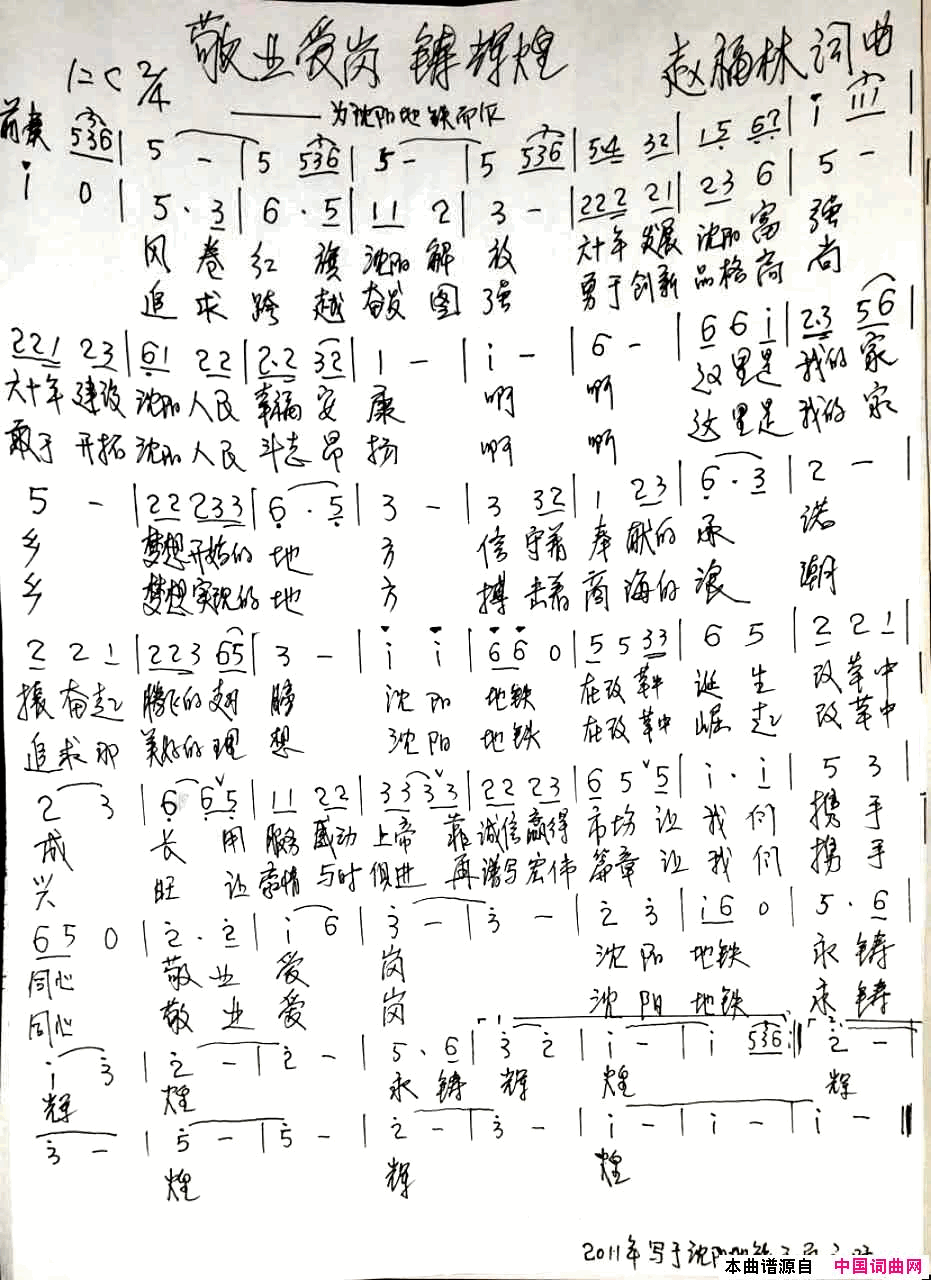 敬业爱岗 铸辉煌
1=C 2/4
赵福林 词曲
——为沈阳地铁而作
前奏 536 | 5 - | 5 536 | 5 - | 5 536 | 5·4 32 | 15 67 | i 111 |
i 0 | 5·3 | 6·5 | 11 2 | 3 - | 222 21 | 23 6 | 5 - |
风卷红旗 沈阳解放 六十年发展 沈阳富强
追求跨越 奋发图强 勇于创新 品格高尚
221 23 | 61 22 | 2·2 32 | 1 - | i - | 6 - | 6 6 i | 2·3 56 |
六十年建设 沈阳人民 幸福安康 啊 啊 这里是我的家
敢于开拓 沈阳人民 斗志昂扬 啊 啊 这里是我的家
5 - | 22 233 | 6·5 | 3 - | 3 32 | 1 23 | 6·3 | 2 - |
乡 梦想开始的地方 信守着奉献的承诺
乡 梦想实现的地方 搏击着商海的浪潮
2 2 1 | 223 65 | 3 - | i i | 66 0 | 5 5 33 | 6 5 | 2 2 1 |
振奋起 腾飞的翅膀 沈阳地铁 在改革中诞生 改革中
追求那 美好的理想 沈阳地铁 在改革中崛起 改革中
2 3 | 6 65 | 11 22 | 33 33 | 22 23 | 6 5 5 | i·i | 5 3
成长 用服务感动上帝 靠诚信赢得市场 让我们携手
兴旺 让豪情与时俱进 再谱写宏伟篇章 让我们携手
65 0 | 2·2 | i 6 | 3 - | 3 - | 2 3 | i6 0 | 5·6 |
同心 敬业爱岗 沈阳地铁 永铸
同心 敬业爱岗 沈阳地铁 永铸
i 3 | 2 - | 2 - | 5·6 | 3 2 | i - | i 536 :| 2 - |
辉煌 永铸辉煌 辉
3 - | 5 - | 5 - | 2 - | 3 - | i - | i - | i - ‖
煌 辉煌
2011年写于沈阳
本曲谱源自 中国词曲网